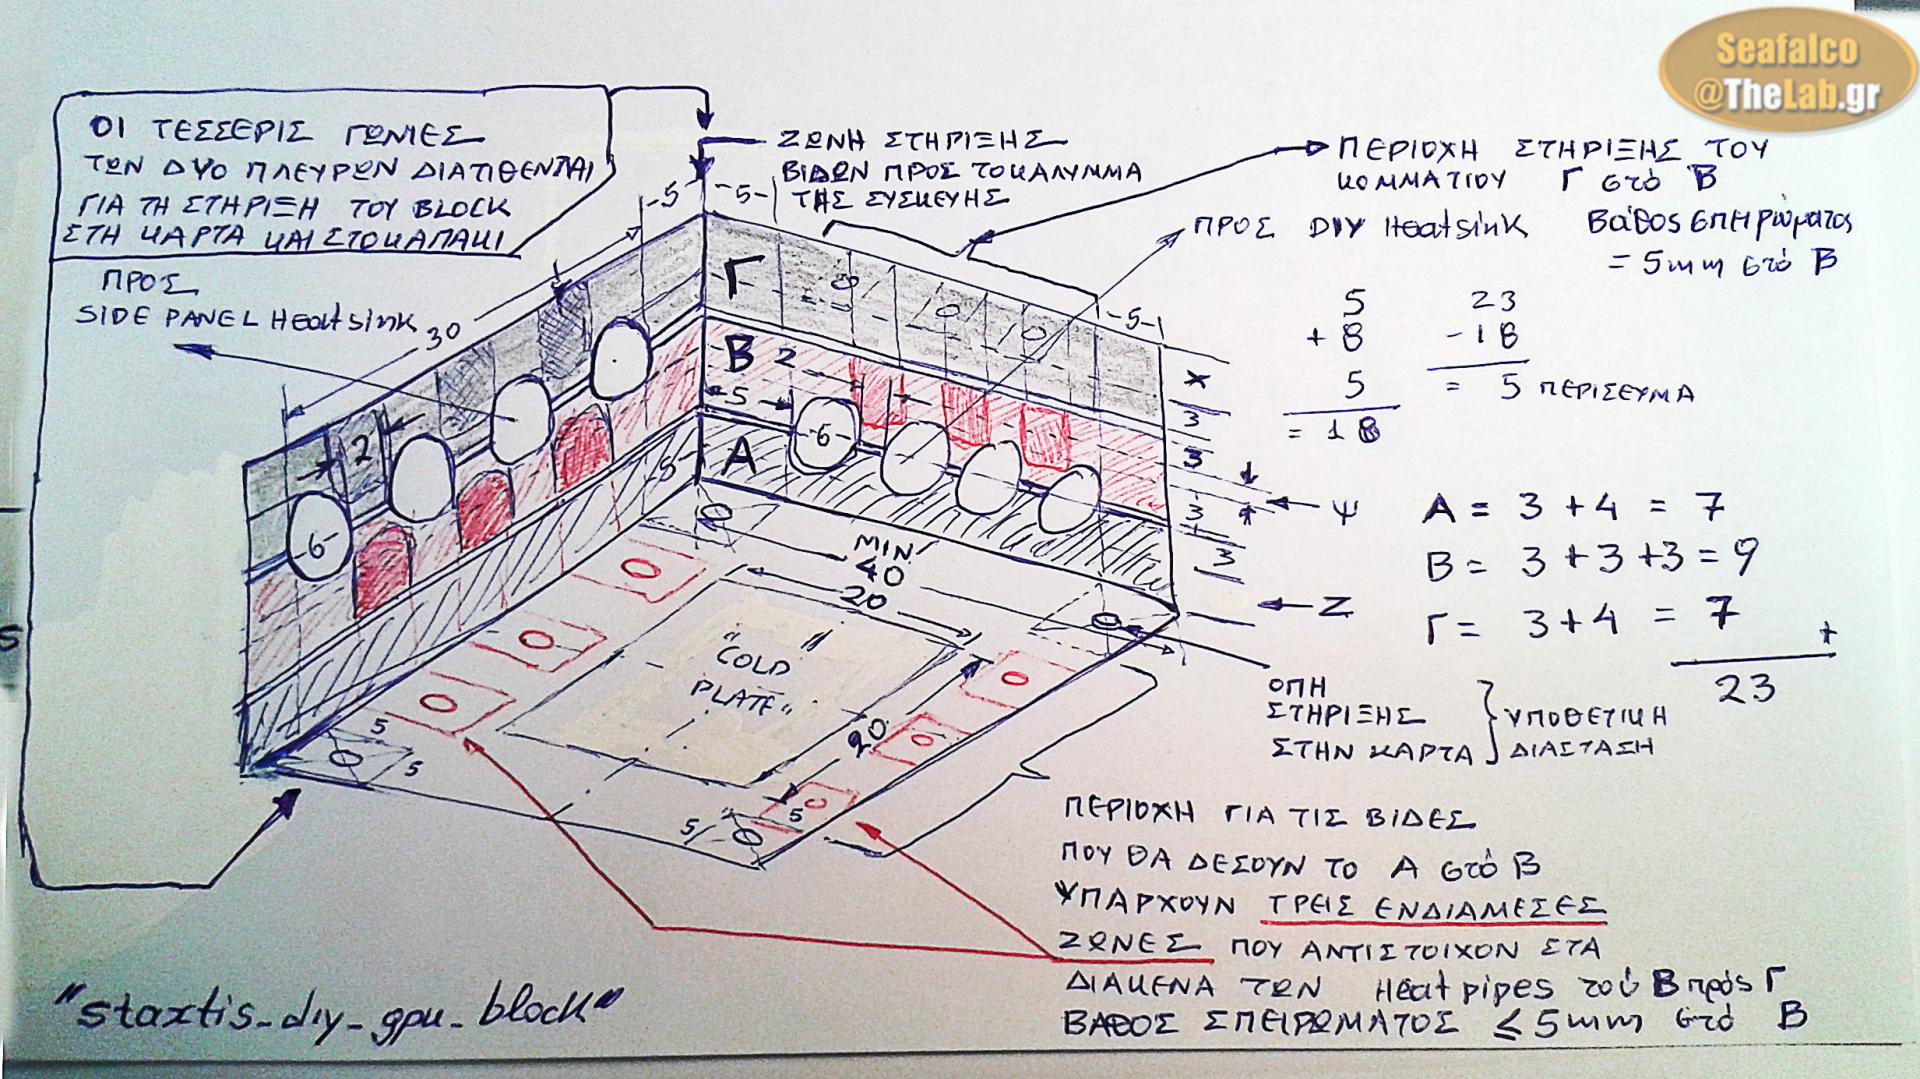 Seafalco
@TheLab.gr
ΟΙ ΤΕΣΣΕΡΙΣ ΓΩΝΙΕΣ
ΤΩΝ ΔΥΟ ΠΛΕΥΡΩΝ ΔΙΑΤΙΘΕΝΤΑΙ
ΓΙΑ ΤΗ ΣΤΗΡΙΞΗ ΤΟΥ BLOCK
ΣΤΗ ΚΑΡΤΑ ΚΑΙ ΣΤΟ ΚΑΠΑΚΙ
ΠΡΟΣ
SIDE PANEL Heatsink
ΖΩΝΗ ΣΤΗΡΙΞΗΣ
ΒΙΔΩΝ ΠΡΟΣ ΤΟ ΚΑΛΥΜΜΑ
ΤΗΣ ΣΥΣΚΕΥΗΣ
ΠΕΡΙΟΧΗ ΣΤΗΡΙΞΗΣ ΤΟΥ
ΚΟΜΜΑΤΙΟΥ Γ στό Β
ΠΡΟΣ DIY Heatsink
Βάθος σπειρώματος
= 5mm στό Β
-5-
-5-
-5-
30
2
-6-
Γ
Β
2
-5-
-6-
Α
-5-
X
3
3
3
3
Ψ
Z
5
+ 8
5
= 18
23
- 18
= 5 ΠΕΡΙΣΕΥΜΑ
Α = 3 + 4 = 7
Β = 3 + 3 + 3 = 9
Γ = 3 + 4 = 7
+
23
MIN
40
20
"COLD
PLATE"
20
5
5
5
5
ΟΠΗ
ΣΤΗΡΙΞΗΣ
ΣΤΗΝ ΚΑΡΤΑ
ΥΠΟΘΕΤΙΚΗ
ΔΙΑΣΤΑΣΗ
ΠΕΡΙΟΧΗ ΓΙΑ ΤΙΣ ΒΙΔΕΣ
ΠΟΥ ΘΑ ΔΕΣΟΥΝ ΤΟ Α στό Β
ΥΠΑΡΧΟΥΝ ΤΡΕΙΣ ΕΝΔΙΑΜΕΣΕΣ
ΖΩΝΕΣ ΠΟΥ ΑΝΤΙΣΤΟΙΧΟΝ ΣΤΑ
ΔΙΑΚΕΝΑ ΤΩΝ Heatpipes τού Β πρός Γ
ΒΑΘΟΣ ΣΠΕΙΡΩΜΑΤΟΣ ≤ 5mm στό Β
"staxtis_diy_gpu_block"